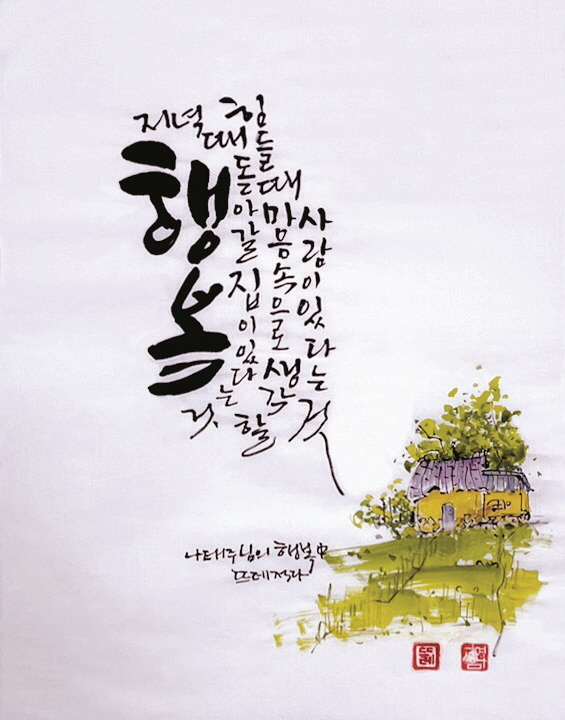 행복
저녁때 돌아갈 집이 있다는 것
힘들때 마음속으로 생각할
사람이 있다는 것
나태주님의 행복中